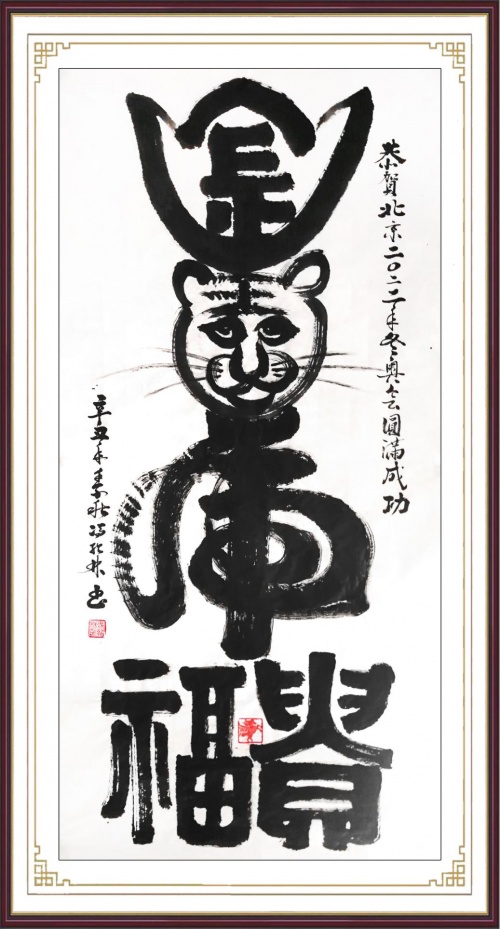 恭賀北京二〇二二年冬奧会圓滿成功
金虎
貴福
辛丑年秋冯书